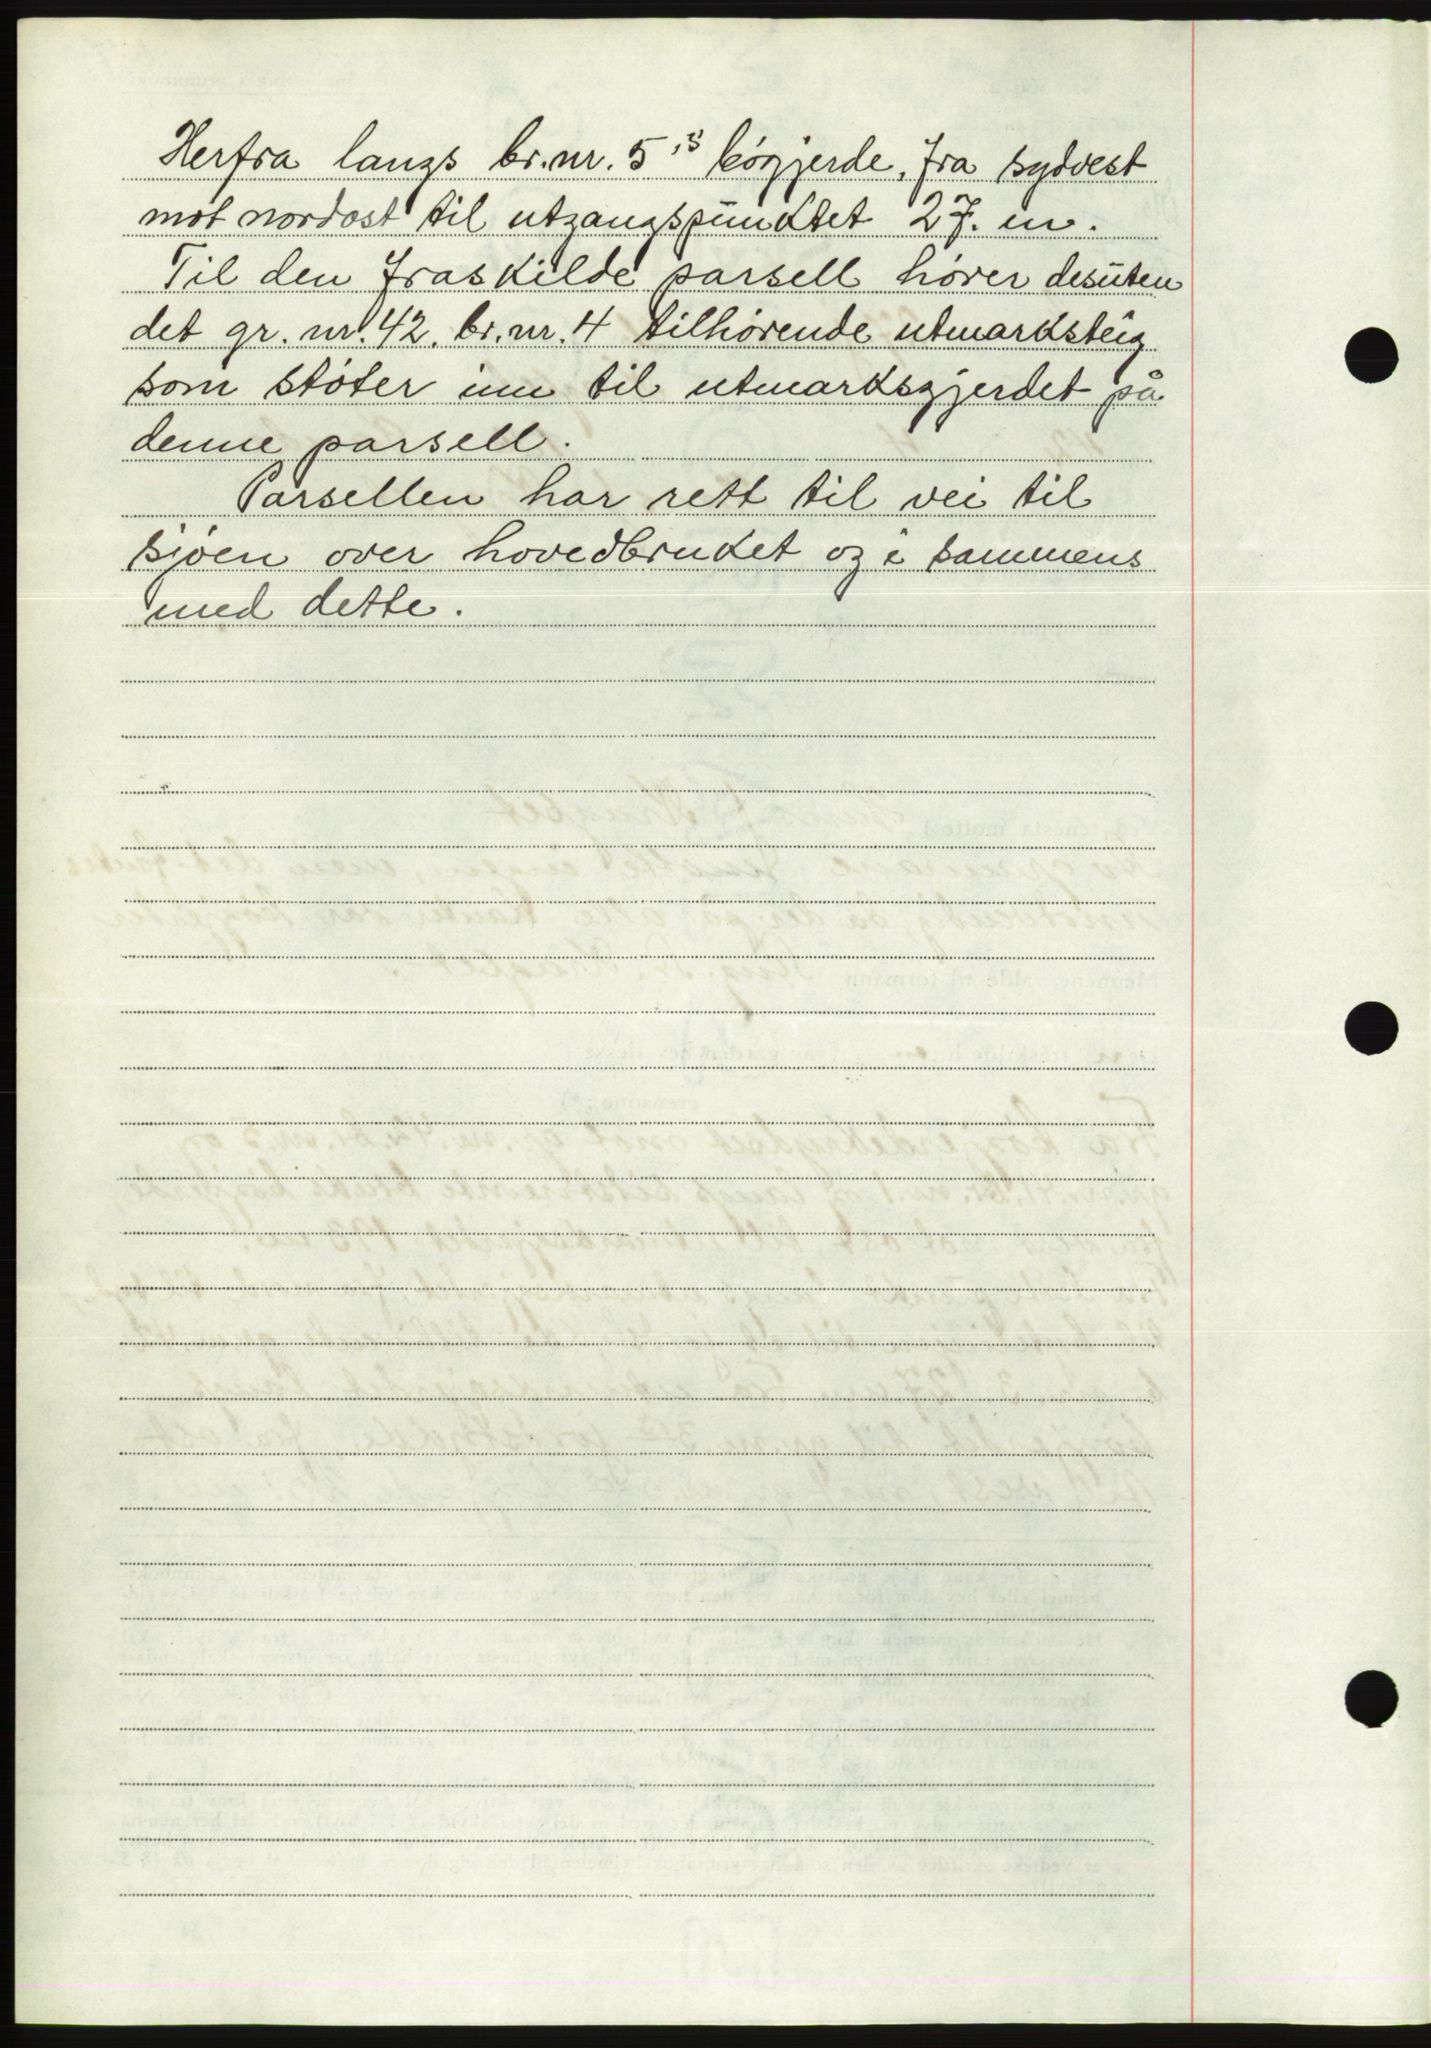 Herfra langs br.nr. 5's bógjerde, fra sydvest
mot nordost til utgangspunktet 27. m.
Til den fraskilde parsell hører desuten
det gr. nr. 42. br. nr. 4 tilhørende utmarksteig
som støter inn til utmarksgjerdet på
denne parsell.
Parsellen har rett til vei til
sjøen over hovedbruket og i sammens
med dette.